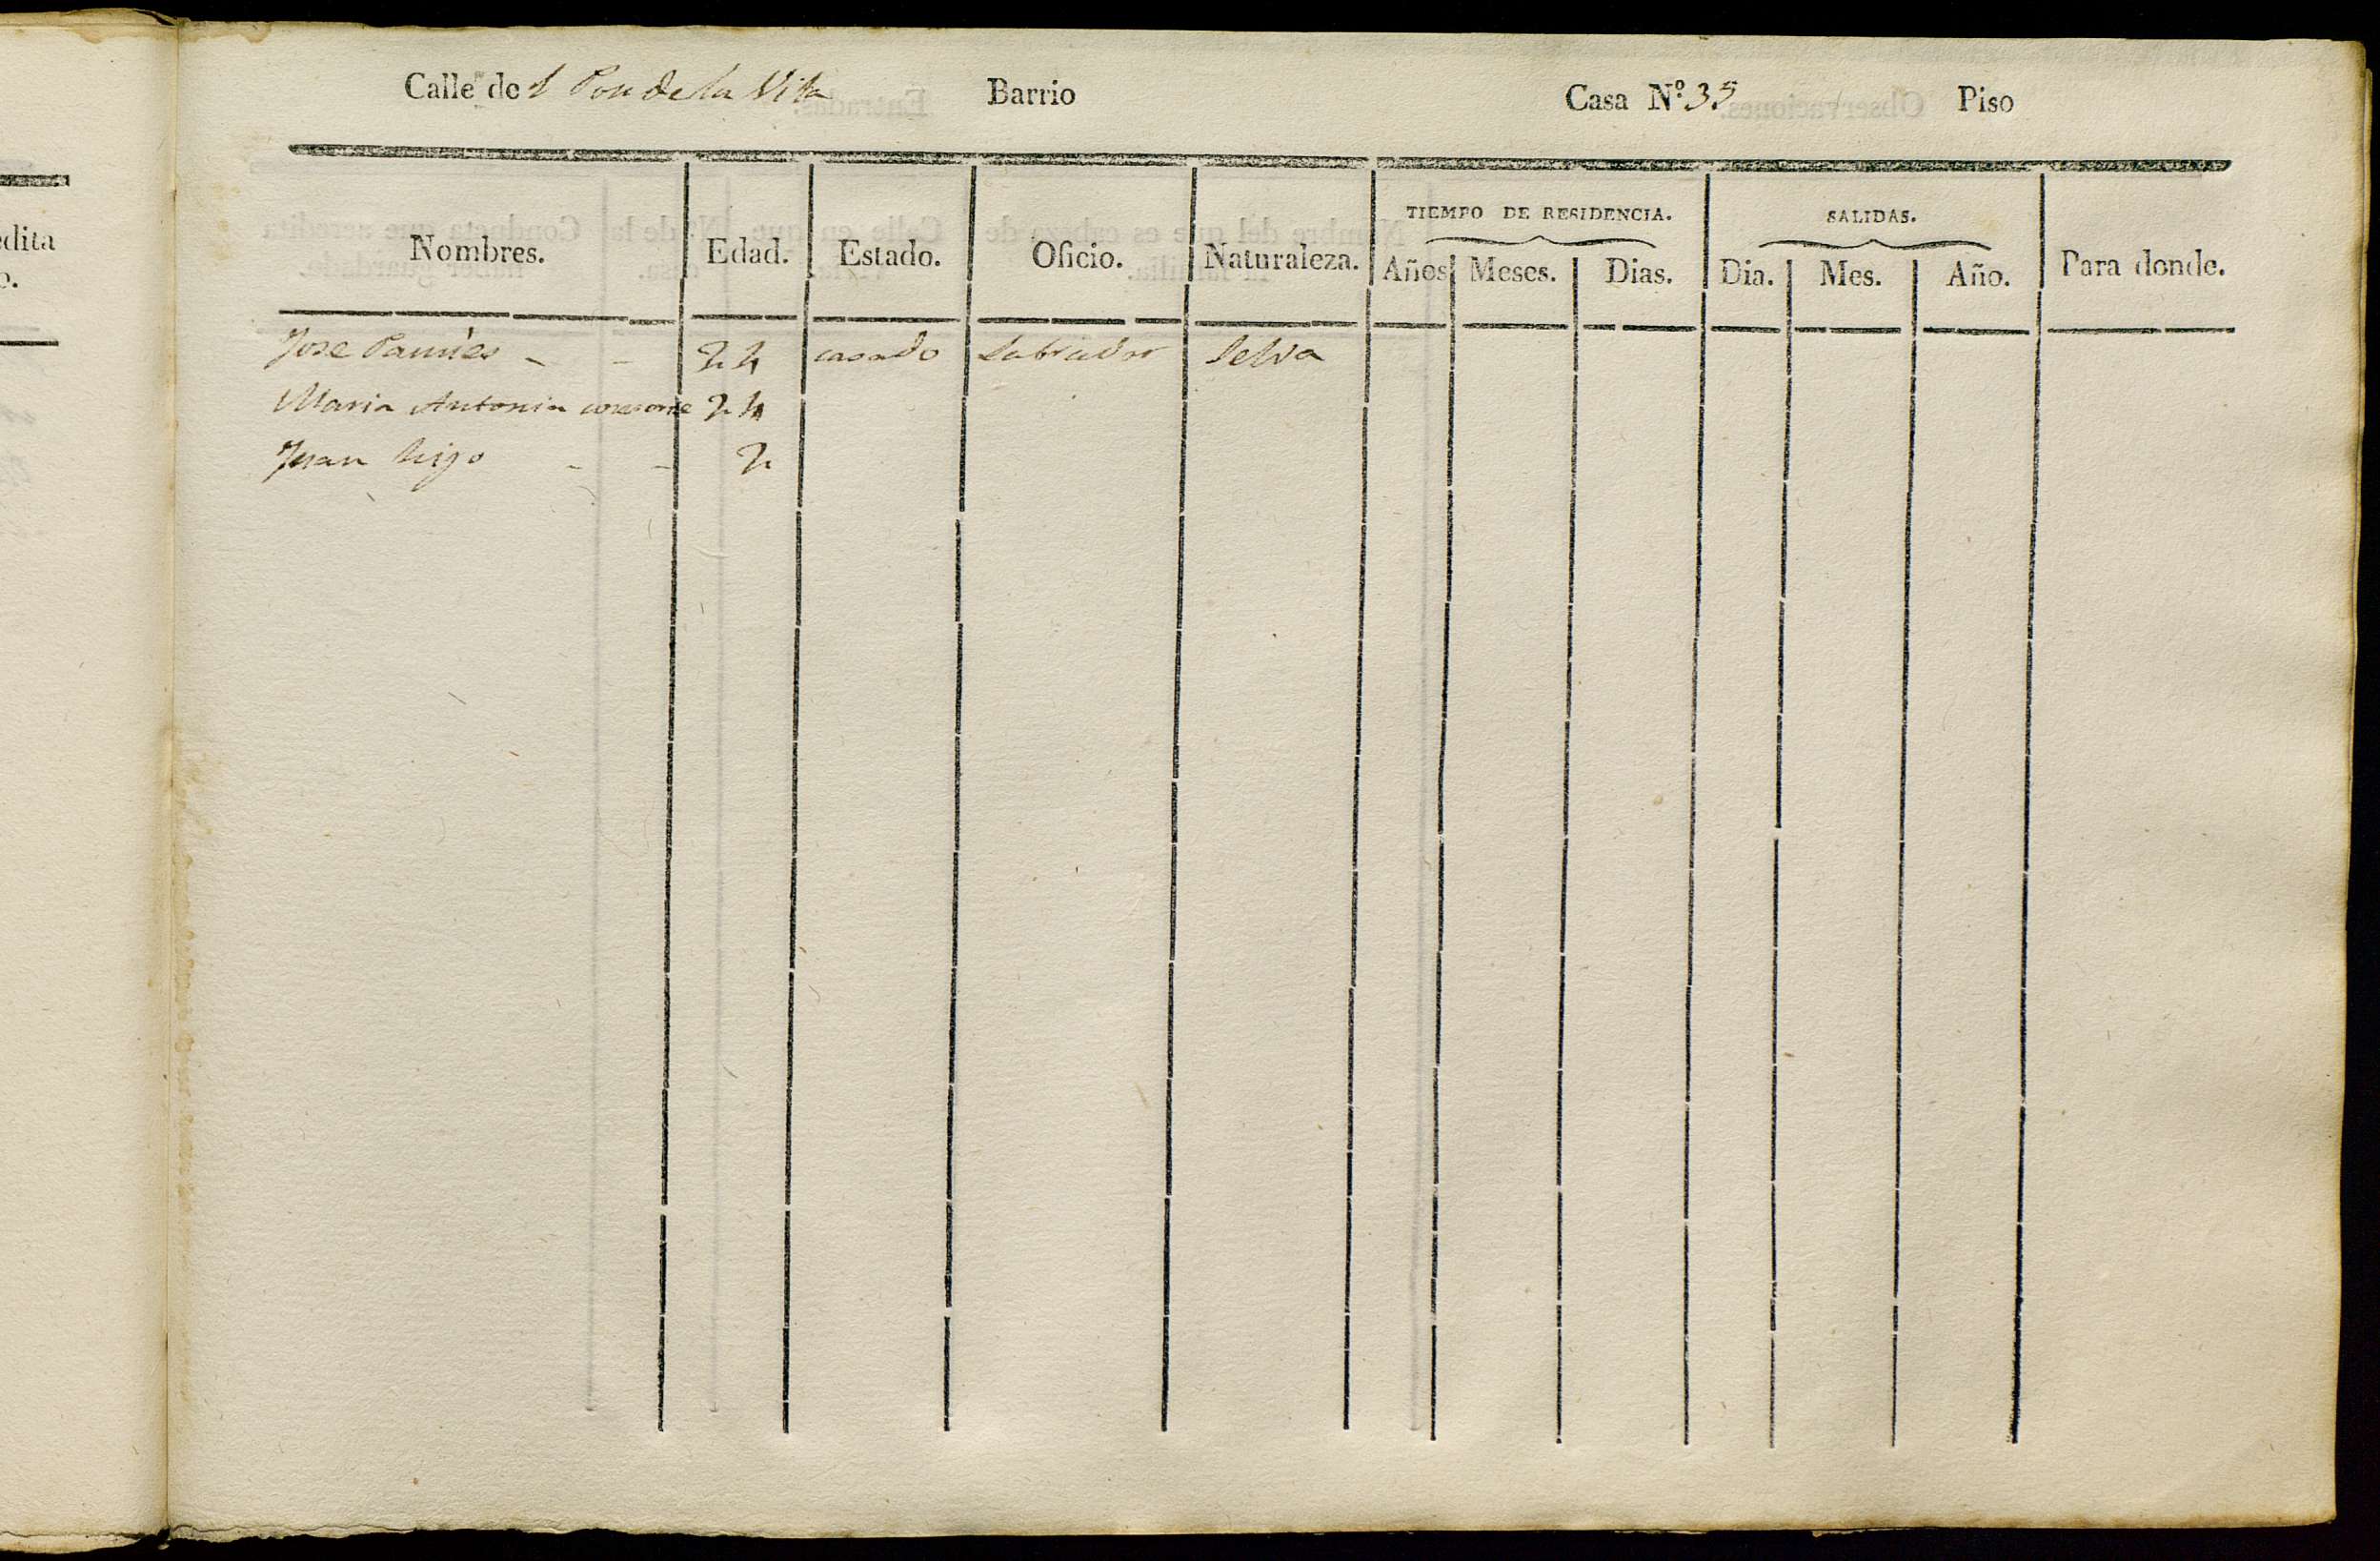 edita
o.
Calle de l Pou de la Vila Barrio Casa Nº 35 Piso
TIEMPO DE RESIDENCIA. SALIDAS.
Nombres. Edad. Estado. Oficio. Naturaleza. Años Meses. Dias. Dia. Mes. Año. Para donde.
Jose Pamies - - 24 casado Labrador Selva
Maria Antonia consorte 24
Juan hijo - - 2